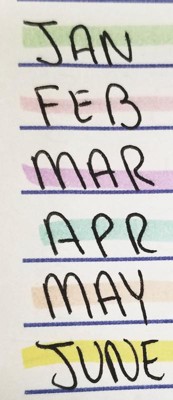 JAN
FEB
MAR
APR
MAY
JUNE